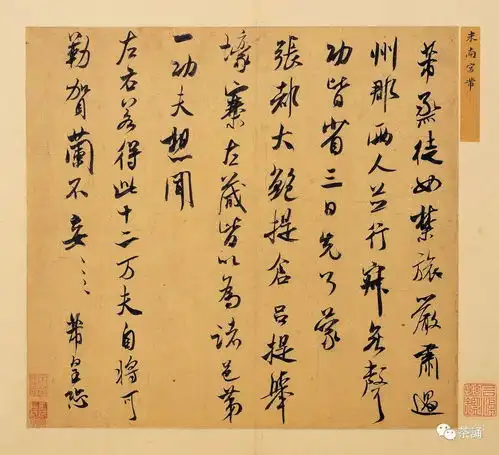 米南宮芾
芾烝徒如禁旅嚴肅過
州郡兩人並行寂無聲
功皆省三日先了蒙
張都大鮑提倉呂提舉
壕寨左藏皆以為諸邑第
一功夫想聞
左右若得此十二万夫自將可
勒賀蘭不妄〻〻芾皇恐